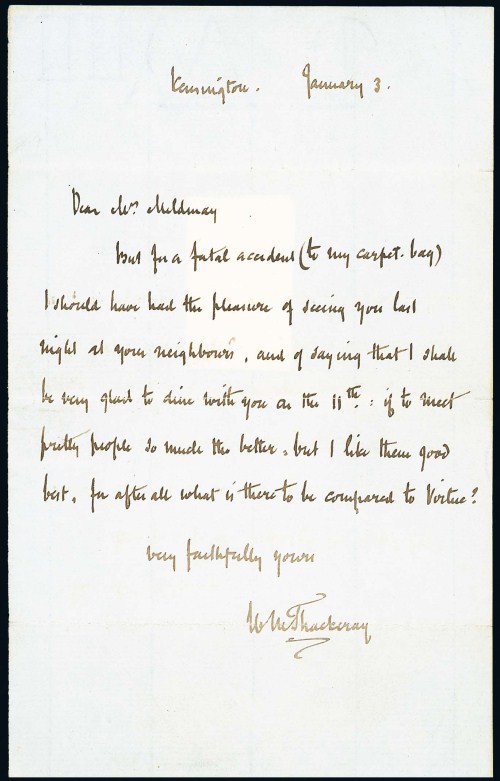 Kensington. January 3.
Dear Mrs Mildmay
But for a fatal accident (to my carpet-bag)
I should have had the pleasure of seeing you last
night at your neighbours, and of saying that I shall
be very glad to dine with you on the 11th: if to meet
pretty people so much the better, but I like them good
best, for after all what is there to be compared to Virtue?
very faithfully yours
W M Thackeray